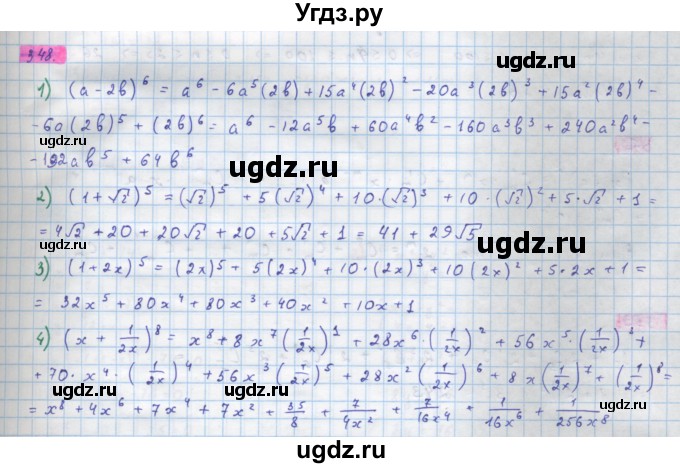 Угдз.ру
348.
1) (a - 2b)^6 = a^6 - 6a^5(2b) + 15a^4(2b)^2 - 20a^3(2b)^3 + 15a^2(2b)^4 -
- 6a(2b)^5 + (2b)^6 = a^6 - 12a^5b + 60a^4b^2 - 160a^3b^3 + 240a^2b^4 -
- 192ab^5 + 64b^6
ugdz.ru ugdz.ru
2) (1+√2)^5 = (√2)^5 + 5(√2)^4 + 10·(√2)^3 + 10·(√2)^2 + 5·√2 + 1 =
= 4√2 + 20 + 20√2 + 20 + 5√2 + 1 = 41 + 29√5
ugdz.ru ugdz.ru
3) (1+2x)^5 = (2x)^5 + 5(2x)^4 + 10·(2x)^3 + 10(2x)^2 + 5·2x + 1 =
= 32x^5 + 80x^4 + 80x^3 + 40x^2 + 10x + 1
ugdz.ru ugdz.ru
4) (x + 1/2x)^8 = x^8 + 8x^7(1/2x)^1 + 28x^6·(1/2x)^2 + 56x^5·(1/2x)^3 +
+ 70·x^4·(1/2x)^4 + 56x^3(1/2x)^5 + 28x^2(1/2x)^6 + 8x(1/2x)^7 + (1/2x)^8 =
= x^8 + 4x^6 + 7x^4 + 7x^2 + 35/8 + 7/4x^2 + 7/16x^4 + 1/16x^6 + 1/256x^8
ugdz.ru ugdz.ru